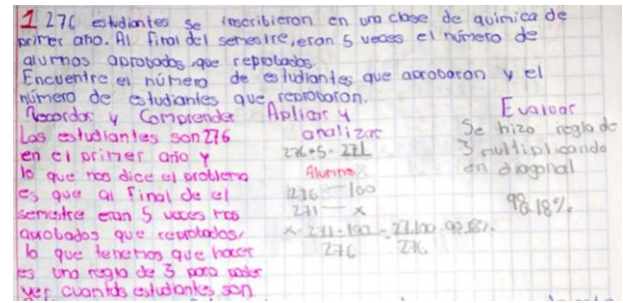 1 276 estudiantes se inscribieron en una clase de química de
primer año. Al final del semestre, eran 5 veces el número de
alumnos aprobados que reprobados.
Encuentre el número de estudiantes que aprobaron y el
número de estudiantes que reprobaron.
Recordar y Comprender
Los estudiantes son 276
en el primer año y
lo que nos dice el problema
es que al final de el
semestre eran 5 veces mas
aprobados que reprobados,
lo que tenemos que hacer
es una regla de 3 para poder
ver cuantos estudiantes son.
Aplicar y
analizar
276-5=271
Alumnos
276 — 100
271 — x
x=271·100 = 27100
276 276
Evaluar
Se hizo regla de
3 multiplicando
en diagonal
98.18%